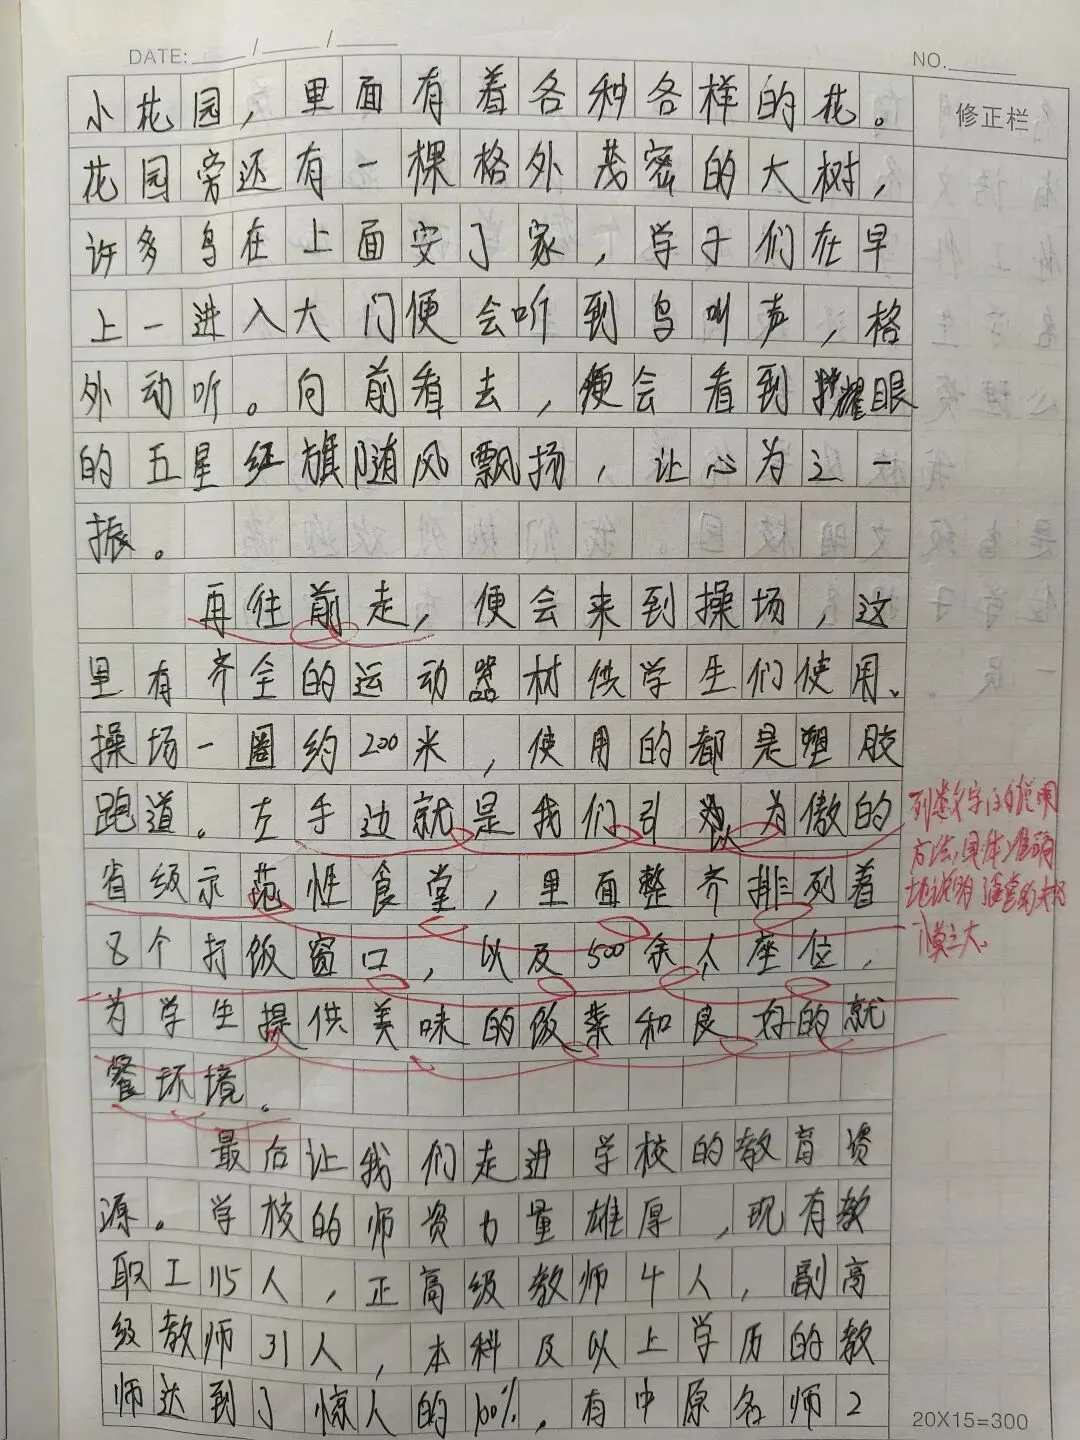 DATE: ____/____/____
NO.
修正栏
小花园，里面有着各种各样的花。
花园旁还有一棵格外茂密的大树，
许多鸟在上面安了家，学子们在早
上一进入大门便会听到鸟叫声，格
外动听。向前看去，便会看到耀眼
的五星红旗随风飘扬，让心为之一
振。
再往前走，便会来到操场，这
里有齐全的运动器材供学生们使用。
操场一圈约200米，使用的都是塑胶
跑道。左手边就是我们引以为傲的
省级示范性食堂，里面整齐排列着
8个打饭窗口，以及500余个座位，
为学生提供美味的饭菜和良好的就
餐环境。
最后让我们走进学校的教育资
源。学校的师资力量雄厚，现有教
职工115人，正高级教师4人，副高
级教师31人，本科及以上学历的教
师达到了惊人的100%，有中原名师2
列数字的说明
方法，具体准确
地说明了食堂的
规模之大。
20X15=300